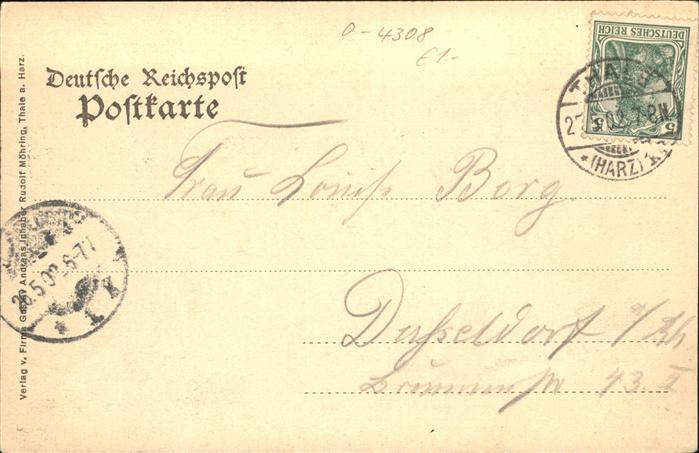 0-4308
€1-
DEUTSCHES REICH
5 5
THALE
5.02. 7-8N.
*(HARZ)
Deutsche Reichspost
Postkarte
Frau Louise Borg.
Dusseldorf a/Rh
Brunnenstr 43. II
5.02. 6-7
* 1
Verlag v. Firma Gustav Andreas Inhaber Rudolf Möhring, Thale a. Harz.